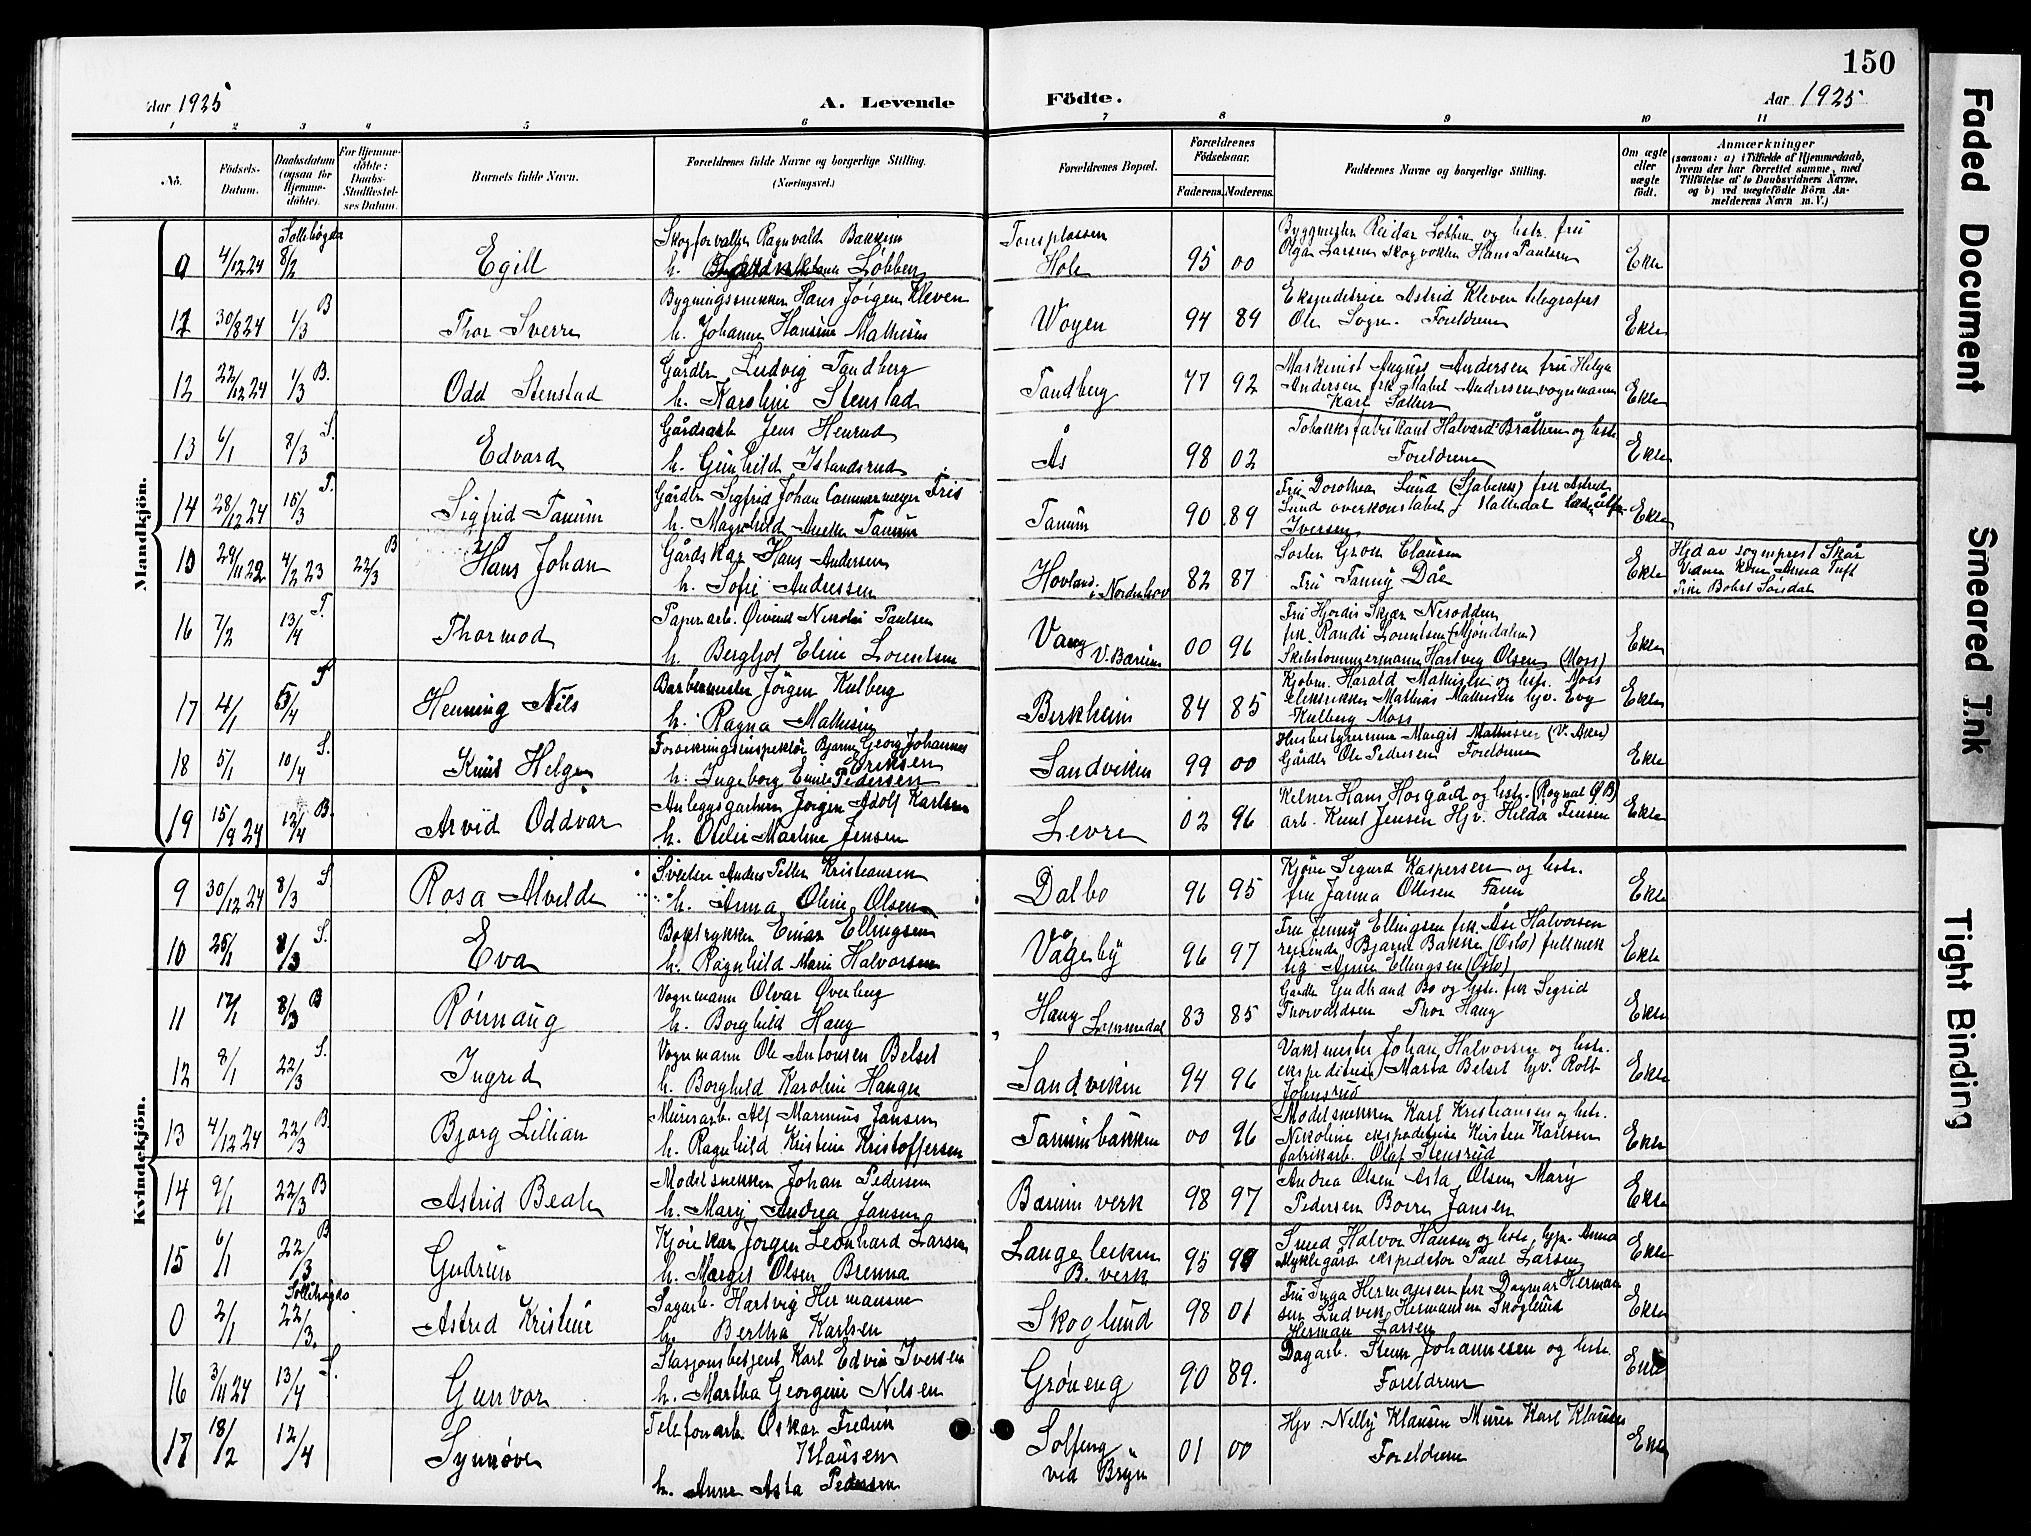 150
Aar 1925
A. Levende
Födte.
Aar 1925
1 2 3 4 5 6 7 8 9 10 11
No.
Födsels-Datum.
Daabsdatum (ogsaa for Hjemmedöbte).
For Hjemmedöbte: Daabs-Stadfæstelses Datum.
Barnets fulde Navn.
Forældrenes fulde Navne og borgerlige Stilling.
(Næringsvei.)
Forældrenes Bopæl.
Forældrenes Födselsaar.
Faderens. Moderens.
Faddernes Navne og borgerlige Stilling.
Om ægte eller uægte födt.
Anmærkninger
(saasom: a) i Tilfælde af Hjemmedaab,
hvem der har forrettet samme, med
Tilföielse af to Daabsvidners Navne,
og b) ved uægtefödte Börn An-
melderens Navn m. V.)
Mandkjön.
9 4/12 24 Sollihøgda 8/2 Egill
Skogforvalter Ragnvald Bakkim
h. Løbben
Hole 95 00
Byggmester Reidar Løbben og hstr. fru
Olga Larsen Skogvokter Hans Paulsen
Ekte
30/8 24 1/3 B Thor Sverre
Bygningssnekker Hans Jörgen Kleven
h. Johanne Hansine Mathisen
Wøyen 94 89
Ekspeditrise Astrid Kleven telegrafist
Ole Sogn. Foreldrene
Ekte
12 22/12 24 1/3 B. Odd Stenstad
Gårdbr Ludvig Tandberg
h. Karoline Stenstad
Tandberg 77 92
Maskinist August Andersen fru Helga
Andersen frk Mabel Andersen vognmann
Karl Sæther
Ekte
13 6/1 8/3 S. Edvard
Gårdsarb Jens Henrud
h. Gunhild Islandsrud
Ås 98 02
Tobakksfabrikant Halvard Bråthen og hstr.
Foreldrene
Ekte
14 28/12 24 15/3 T. Sigfrid Tanum
Gårdbr Sigfrid Johan Cammermeyer Friis
h. Magnhild Tanum
Tanum 90 89
Fru Dorothea Lund (Stabekk) frk Astrid
Lund overkonstabel Hallsdal
Iversen
Ekte
15 29/11 22 4/2 23 22/3 B Hans Johan
Gårdskar Hans Andersen
h. Sofie Andressen
Hovland i Norderhov 82 87
Søster Groen Clausen
Fru Fanny Dåe
Ekte
Hjd av sogneprest Skår
Vidner kone Anna Tuft
Pike Borhil Sørdal
16 7/2 13/4 T. Thormod
Papirarb. Øivind Nikolai Paulsen
h. Bergljot Eline Lorentsen
Vang V. Bærum 00 96
Fru Hjördis Skjær Nesodden
frk. Randi Lorentsen (Mjöndalen)
Skibstømmermann Hartvig Olsen (Moss)
Ekte
17 4/1 5/4 T Henning Nils
Barbermester Jörgen Kulberg
h. Ragna Mathisen
Birkheim 84 85
Kjøbm. Harald Mathisen og hstr. Moss
elektrikker Mathias Mathisen hjv. Evy
Kulberg Moss
Ekte
18 5/1 10/4 S. Knut Helge
Forsikringsinspektør Bjarne Georg Johannes
Eriksen
h. Ingeborg Emilie Pedersen
Sandviken 99 00
Husbestyrerinne Margit Mathisen (V. Aker)
Gårdbr Ole Pedersen Foreldrene
Ekte
19 15/9 24 12/4 B. Arvid Oddvar
Anleggsgartner Jørgen Adolf Karlsen
h. Martine Jensen
Levre 02 96
Kelner Hans Hosgård og hstr.
arb. Knut Jensen Hjv. Hilda Jensen
Ekte
Kvindekjön.
9 30/12 24 8/3 S. Rosa Alvilde
Sveiser Anders Petter Kristiansen
h. Anna Oline Olsen
Dalbo 96 95
Kjöre Sigurd Kaspersen og hstr.
fru Janna Ottesen
Ekte
10 25/1 8/3 S. Eva
Boktrykker Einar Ellingsen
h. Ragnhild Marie Halvorsen
Vågeby 96 97
Fru Jenny Ellingsen frk. Åse Halvorsen
reisende Bjarne Bakke (Oslo) fullmek
tig Arne Ellingsen (Oslo)
Ekte
11 17/1 8/3 B Rönnaug
Vognmann Olvar Øverberg
h. Borghild Haug
Haug Lommedal 83 85
Gårdbr Gudbrand Bo og hstr. frk Sigrid
Thorvaldsen Thor Haug
Ekte
12 8/1 22/3 S. Ingrid
Vognmann Ole Antonsen Belset
h. Borghild Karoline Hauger
Sandviken 94 96
Vaktmester Johan Halvorsen og hstr.
ekspeditrise Marta Belset hjv. Rolf
Johnsrud
Ekte
13 4/12 24 22/3 B. Bjørg Lillian
Murerarb. Alf Marinius Jansen
h. Ragnhild Kristine Kristoffersen
Tanumbakken 00 96
Modelsnekker Karl Kristiansen og hstr.
Nikoline ekspeditrise Kirsten Karlsen
fabrikarb. Olaf Stensrud
Ekte
14 9/1 22/3 B Astrid Beate
Modelsnekker Johan Pedersen
h. Mary Andrea Jansen
Bærum verk 98 97
Andrea Olsen Asta Olsen Mary
Pedersen Borre Jansen
Ekte
15 6/1 22/3 B Gudrun
Kjørekar Jørgen Leonhard Larsen
h. Margit Olsen Brenna
Langeleiken B. verk 95 99
Smed Halvor Hansen og hstr. Anna
Myklegård ekspeditør Paul Larsen
Ekte
0 2/1 Sollihøgda 22/3. Astrid Kristine
Sagarb. Hartvig Hermansen
h. Bertha Karlsen
Skoglund 98 01
Fru Inga Hermansen frk Dagmar Herman
sen Ludvik Hermansen Skoglund
Herman Larsen
Ekte
16 3/11 24 13/4 S. Gunvor
Stasjonsbetjent Karl Edvin Iversen
h. Martha Georgine Nilsen
Grøneng 90 89.
Dagarb. Johannesen og hstr.
Foreldrene
Ekte
17 18/2 12/4 Synnøve
Telefonarb Oskar Fredrin
Klausen
h. Anne Asta Pedersen
Solfeng ved Bryn 01 00
Hjv. Nelly Klausen Murer Karl Klausen
Foreldrene
Ekte
Faded Document
Smeared Ink
Tight Binding